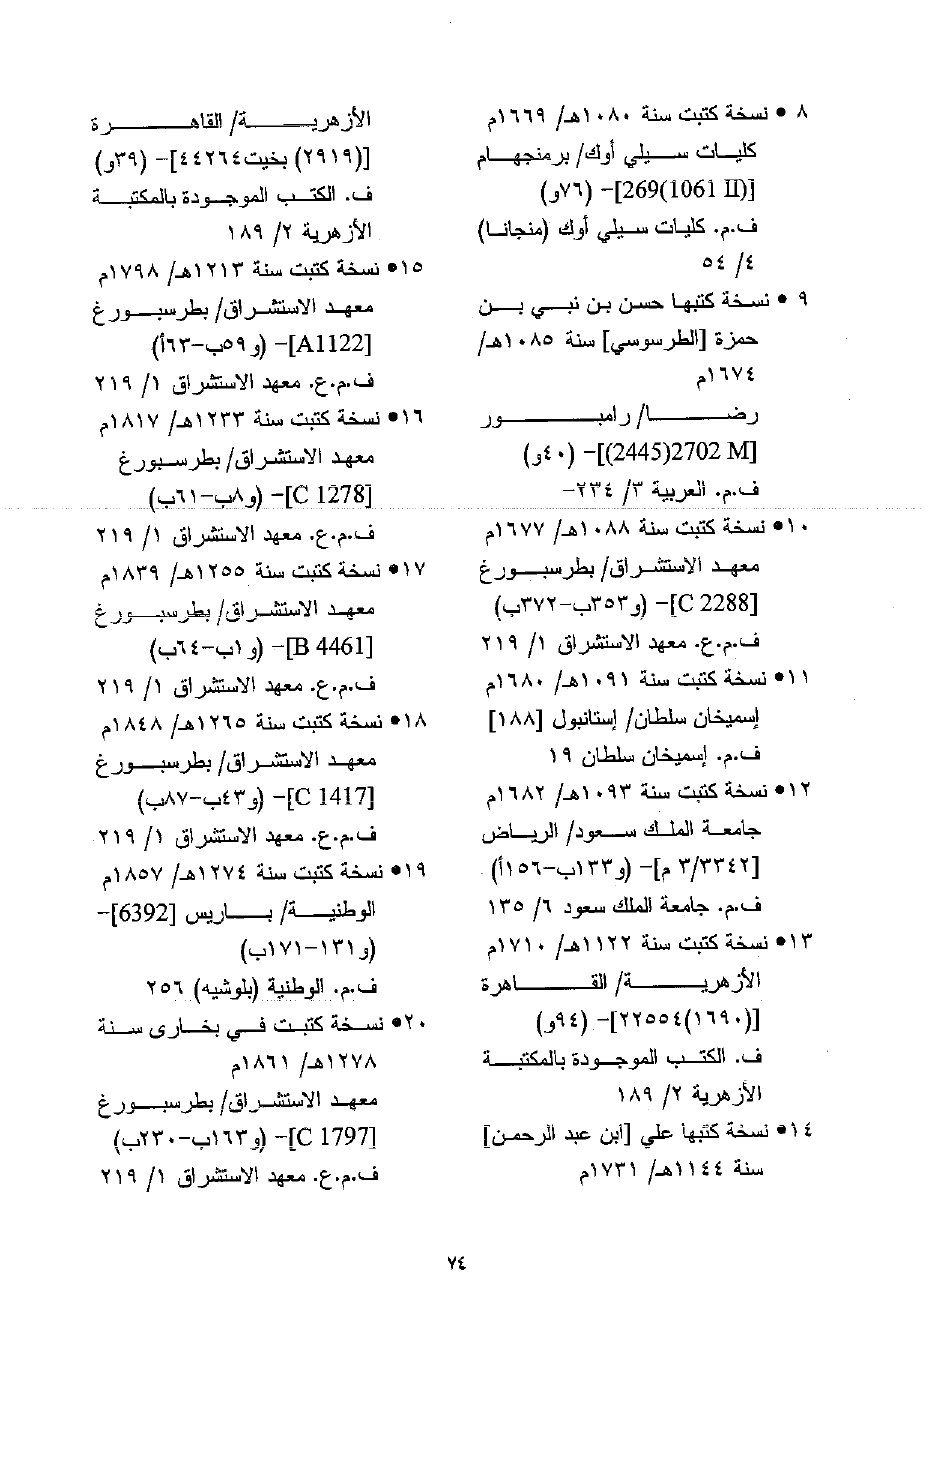 ٨ • نسخة كتبت سنة ١٠٨٠هـ/ ١٦٦٩م
كليات سيلي أوك/ برمنجهام
[269(1061 II)]- (٧٦و)
ف.م. كليات سيلي أوك (منجانا)
٤/ ٥٤
٩ • نسخة كتبها حسن بن نبي بن
حمزة [الطرسوسي] سنة ١٠٨٥هـ/
١٦٧٤م
رضا/ رامبور
[2702 M(2445)]- (٤٠و)
ف.م. العربية ٣/ ٢٣٤-
١٠• نسخة كتبت سنة ١٠٨٨هـ/ ١٦٧٧م
معهد الاستشراق/ بطرسبورغ
[C 2288]- (و٣٥٣ب-٣٧٢ب)
ف.م.ع. معهد الاستشراق ١/ ٢١٩
١١• نسخة كتبت سنة ١٠٩١هـ/ ١٦٨٠م
إسميخان سلطان/ إستانبول [١٨٨]
ف.م. إسميخان سلطان ١٩
١٢• نسخة كتبت سنة ١٠٩٣هـ/ ١٦٨٢م
جامعة الملك سعود/ الرياض
[٣/٣٣٤٢ م]- (و١٣٣ب-١٥٦أ)
ف.م. جامعة الملك سعود ٦/ ١٣٥
١٣• نسخة كتبت سنة ١١٢٢هـ/ ١٧١٠م
الأزهرية/ القاهرة
[(١٦٩٠)٢٢٥٥٤]- (٩٤و)
ف. الكتب الموجودة بالمكتبة
الأزهرية ٢/ ١٨٩
١٤• نسخة كتبها علي [ابن عبد الرحمن]
سنة ١١٤٤هـ/ ١٧٣١م
الأزهرية/ القاهرة
[(٢٩١٩) بخيت٤٤٢٦٤]- (٣٩و)
ف. الكتب الموجودة بالمكتبة
الأزهرية ٢/ ١٨٩
١٥• نسخة كتبت سنة ١٢١٣هـ/ ١٧٩٨م
معهد الاستشراق/ بطرسبورغ
[A1122]- (و٥٩ب-٦٣أ)
ف.م.ع. معهد الاستشراق ١/ ٢١٩
١٦• نسخة كتبت سنة ١٢٣٣هـ/ ١٨١٧م
معهد الاستشراق/ بطرسبورغ
[C 1278]- (و٨ب-٦١ب)
ف.م.ع. معهد الاستشراق ١/ ٢١٩
١٧• نسخة كتبت سنة ١٢٥٥هـ/ ١٨٣٩م
معهد الاستشراق/ بطرسبورغ
[B 4461]- (و١ب-٦٤ب)
ف.م.ع. معهد الاستشراق ١/ ٢١٩
١٨• نسخة كتبت سنة ١٢٦٥هـ/ ١٨٤٨م
معهد الاستشراق/ بطرسبورغ
[C 1417]- (و٤٣ب-٨٧ب)
ف.م.ع. معهد الاستشراق ١/ ٢١٩
١٩• نسخة كتبت سنة ١٢٧٤هـ/ ١٨٥٧م
الوطنية/ باريس [6392]-
(و١٣١-١٧١ب)
ف.م. الوطنية (بلوشيه) ٢٥٦
٢٠• نسخة كتبت في بخارى سنة
١٢٧٨هـ/ ١٨٦١م
معهد الاستشراق/ بطرسبورغ
[C 1797]- (و١٦٣ب-٢٣٠ب)
ف.م.ع. معهد الاستشراق ١/ ٢١٩
٧٤